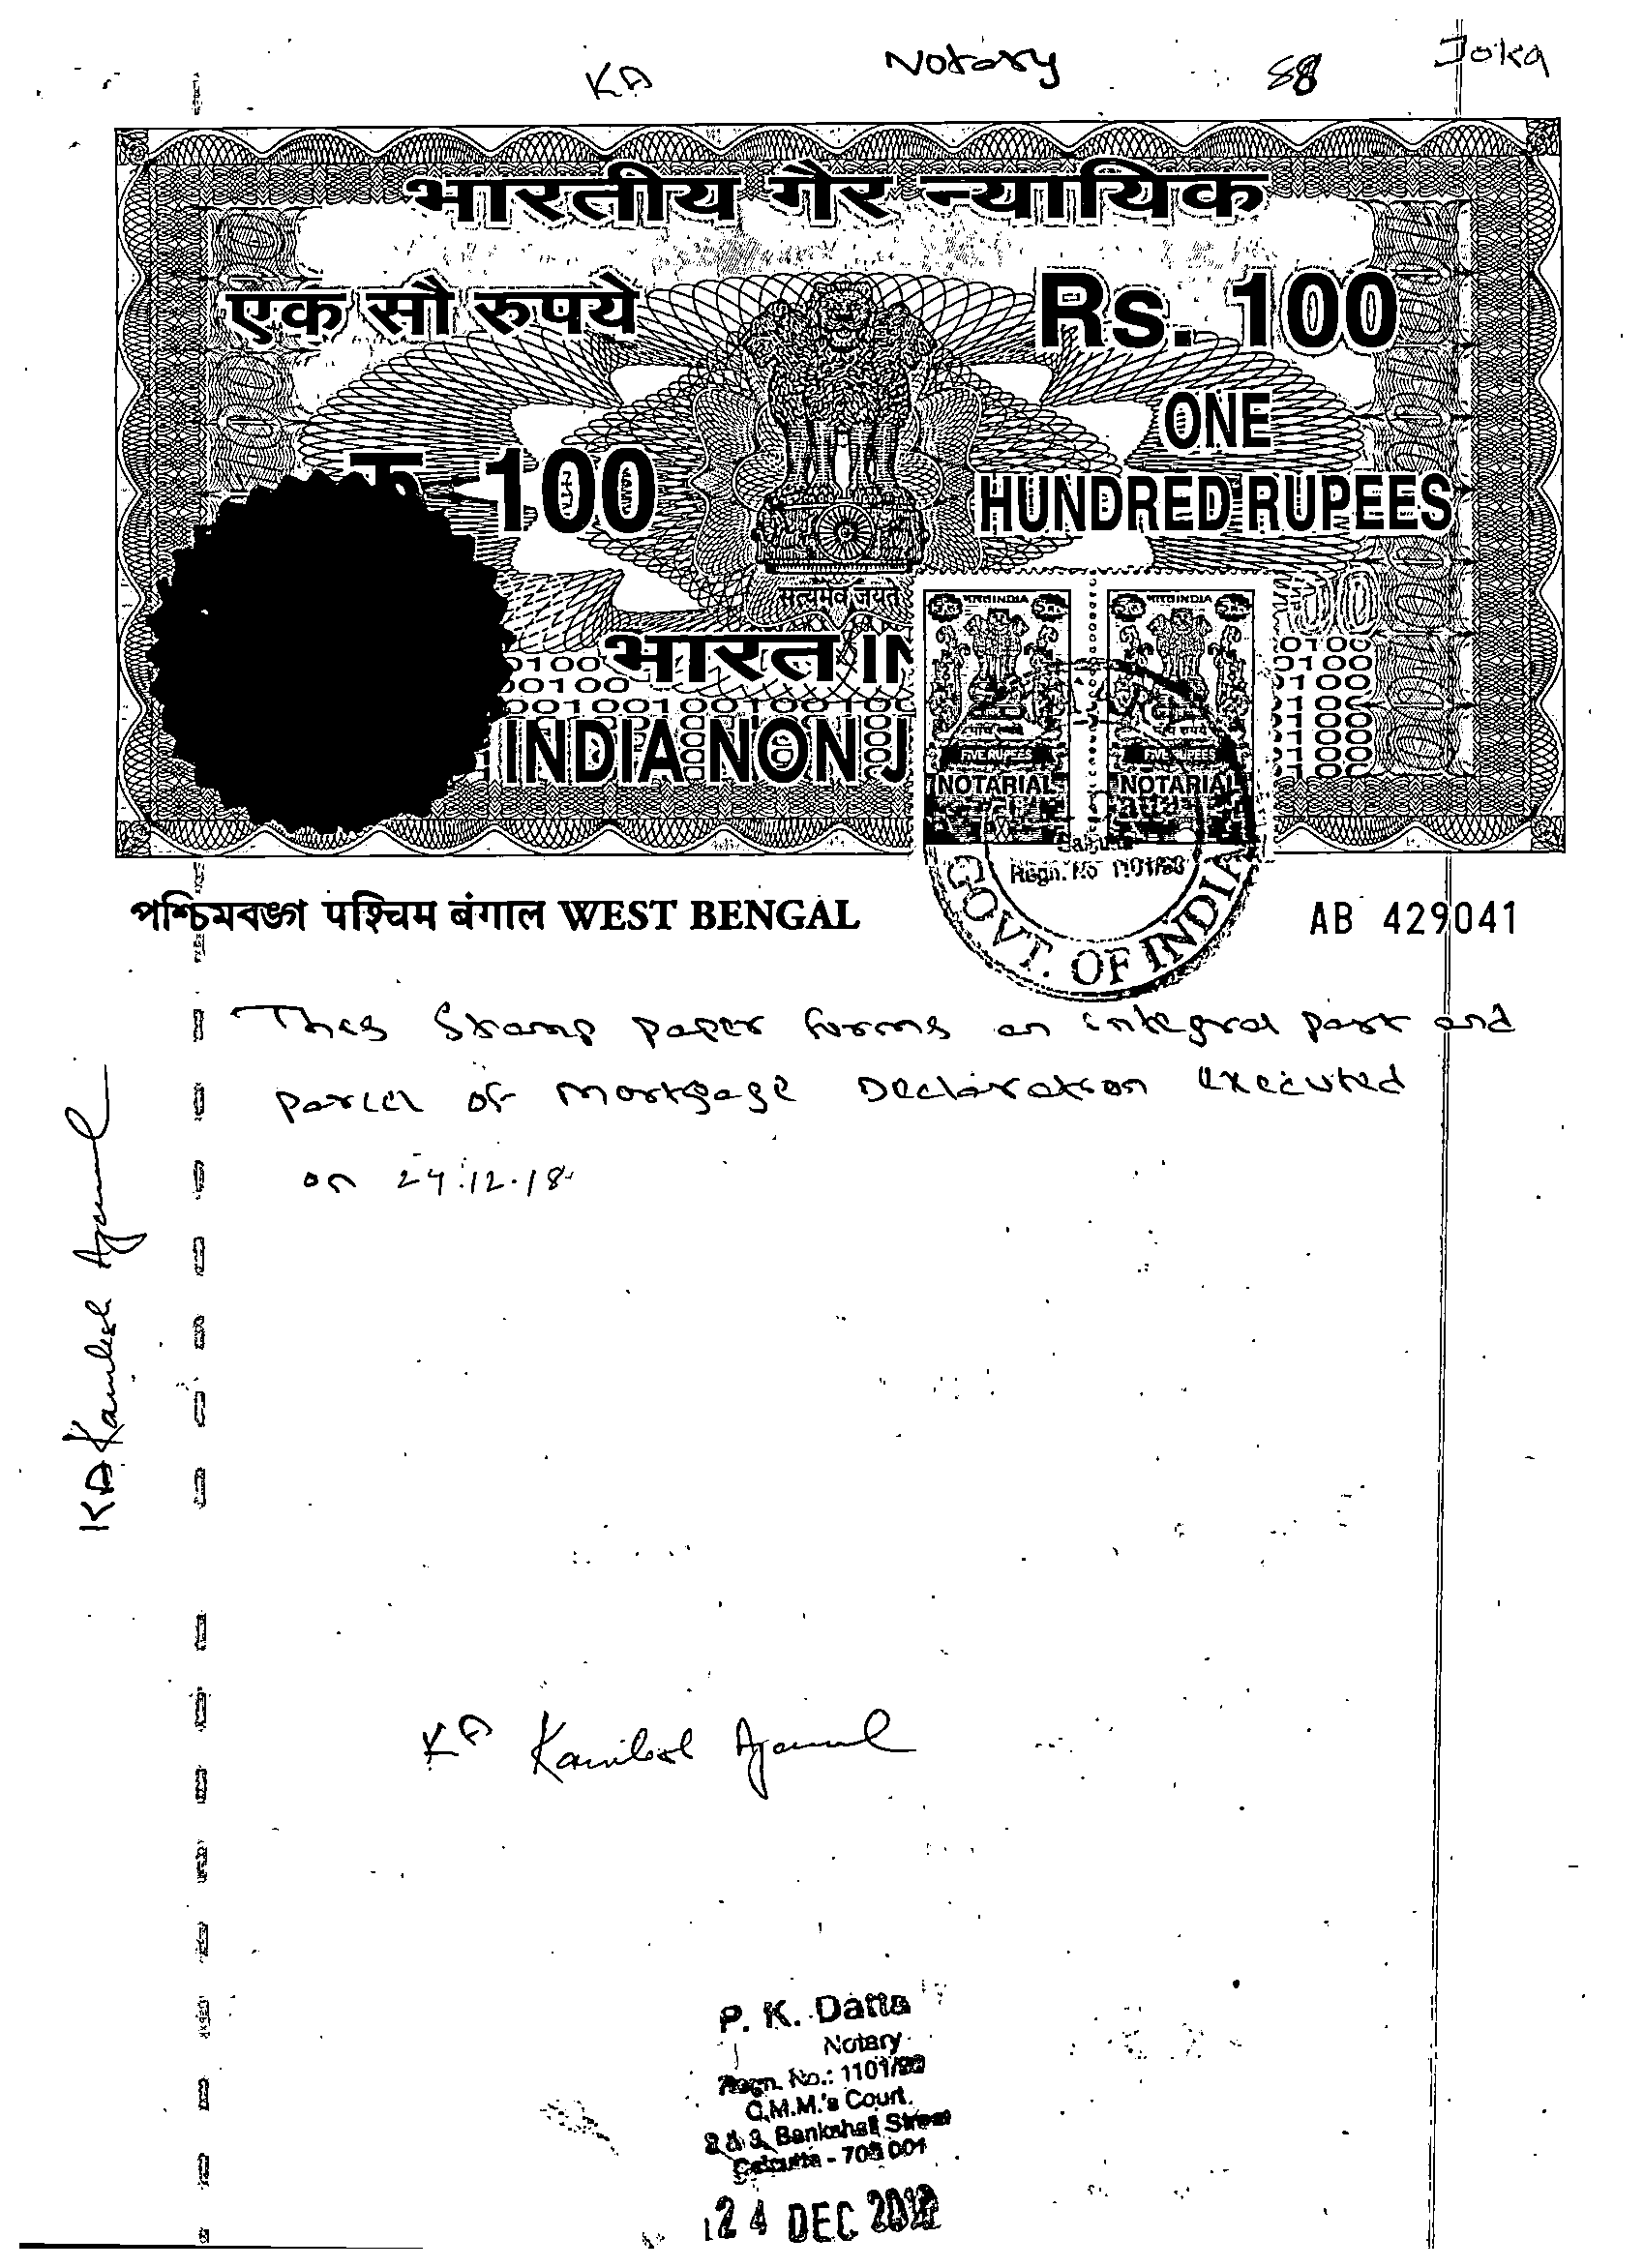 KA Notary 88 Joka
भारतीय गैर न्यायिक
एक सौ रुपये Rs. 100
रु. 100 ONE
HUNDRED RUPEES
सत्यमेव जयते
भारत IN
INDIA NON J
भारत INDIA भारत INDIA
FIVE RUPEES FIVE RUPEES
NOTARIAL NOTARIAL
Regn. No 1101/
GOVT. OF INDIA
পশ্চিমবঙ্গ पश्चिम बंगाल WEST BENGAL AB 429041
This Stamp paper forms an integral part and
parcel of Mortgage Declaration executed
on 24.12.18
KA Kamlesh Agarwal
KA Kamlesh Agarwal
P. K. Datta
Notary
Regn. No.: 1101/
C.M.M.'s Court
2 & 3, Bankshall Street
Calcutta - 700 001
24 DEC